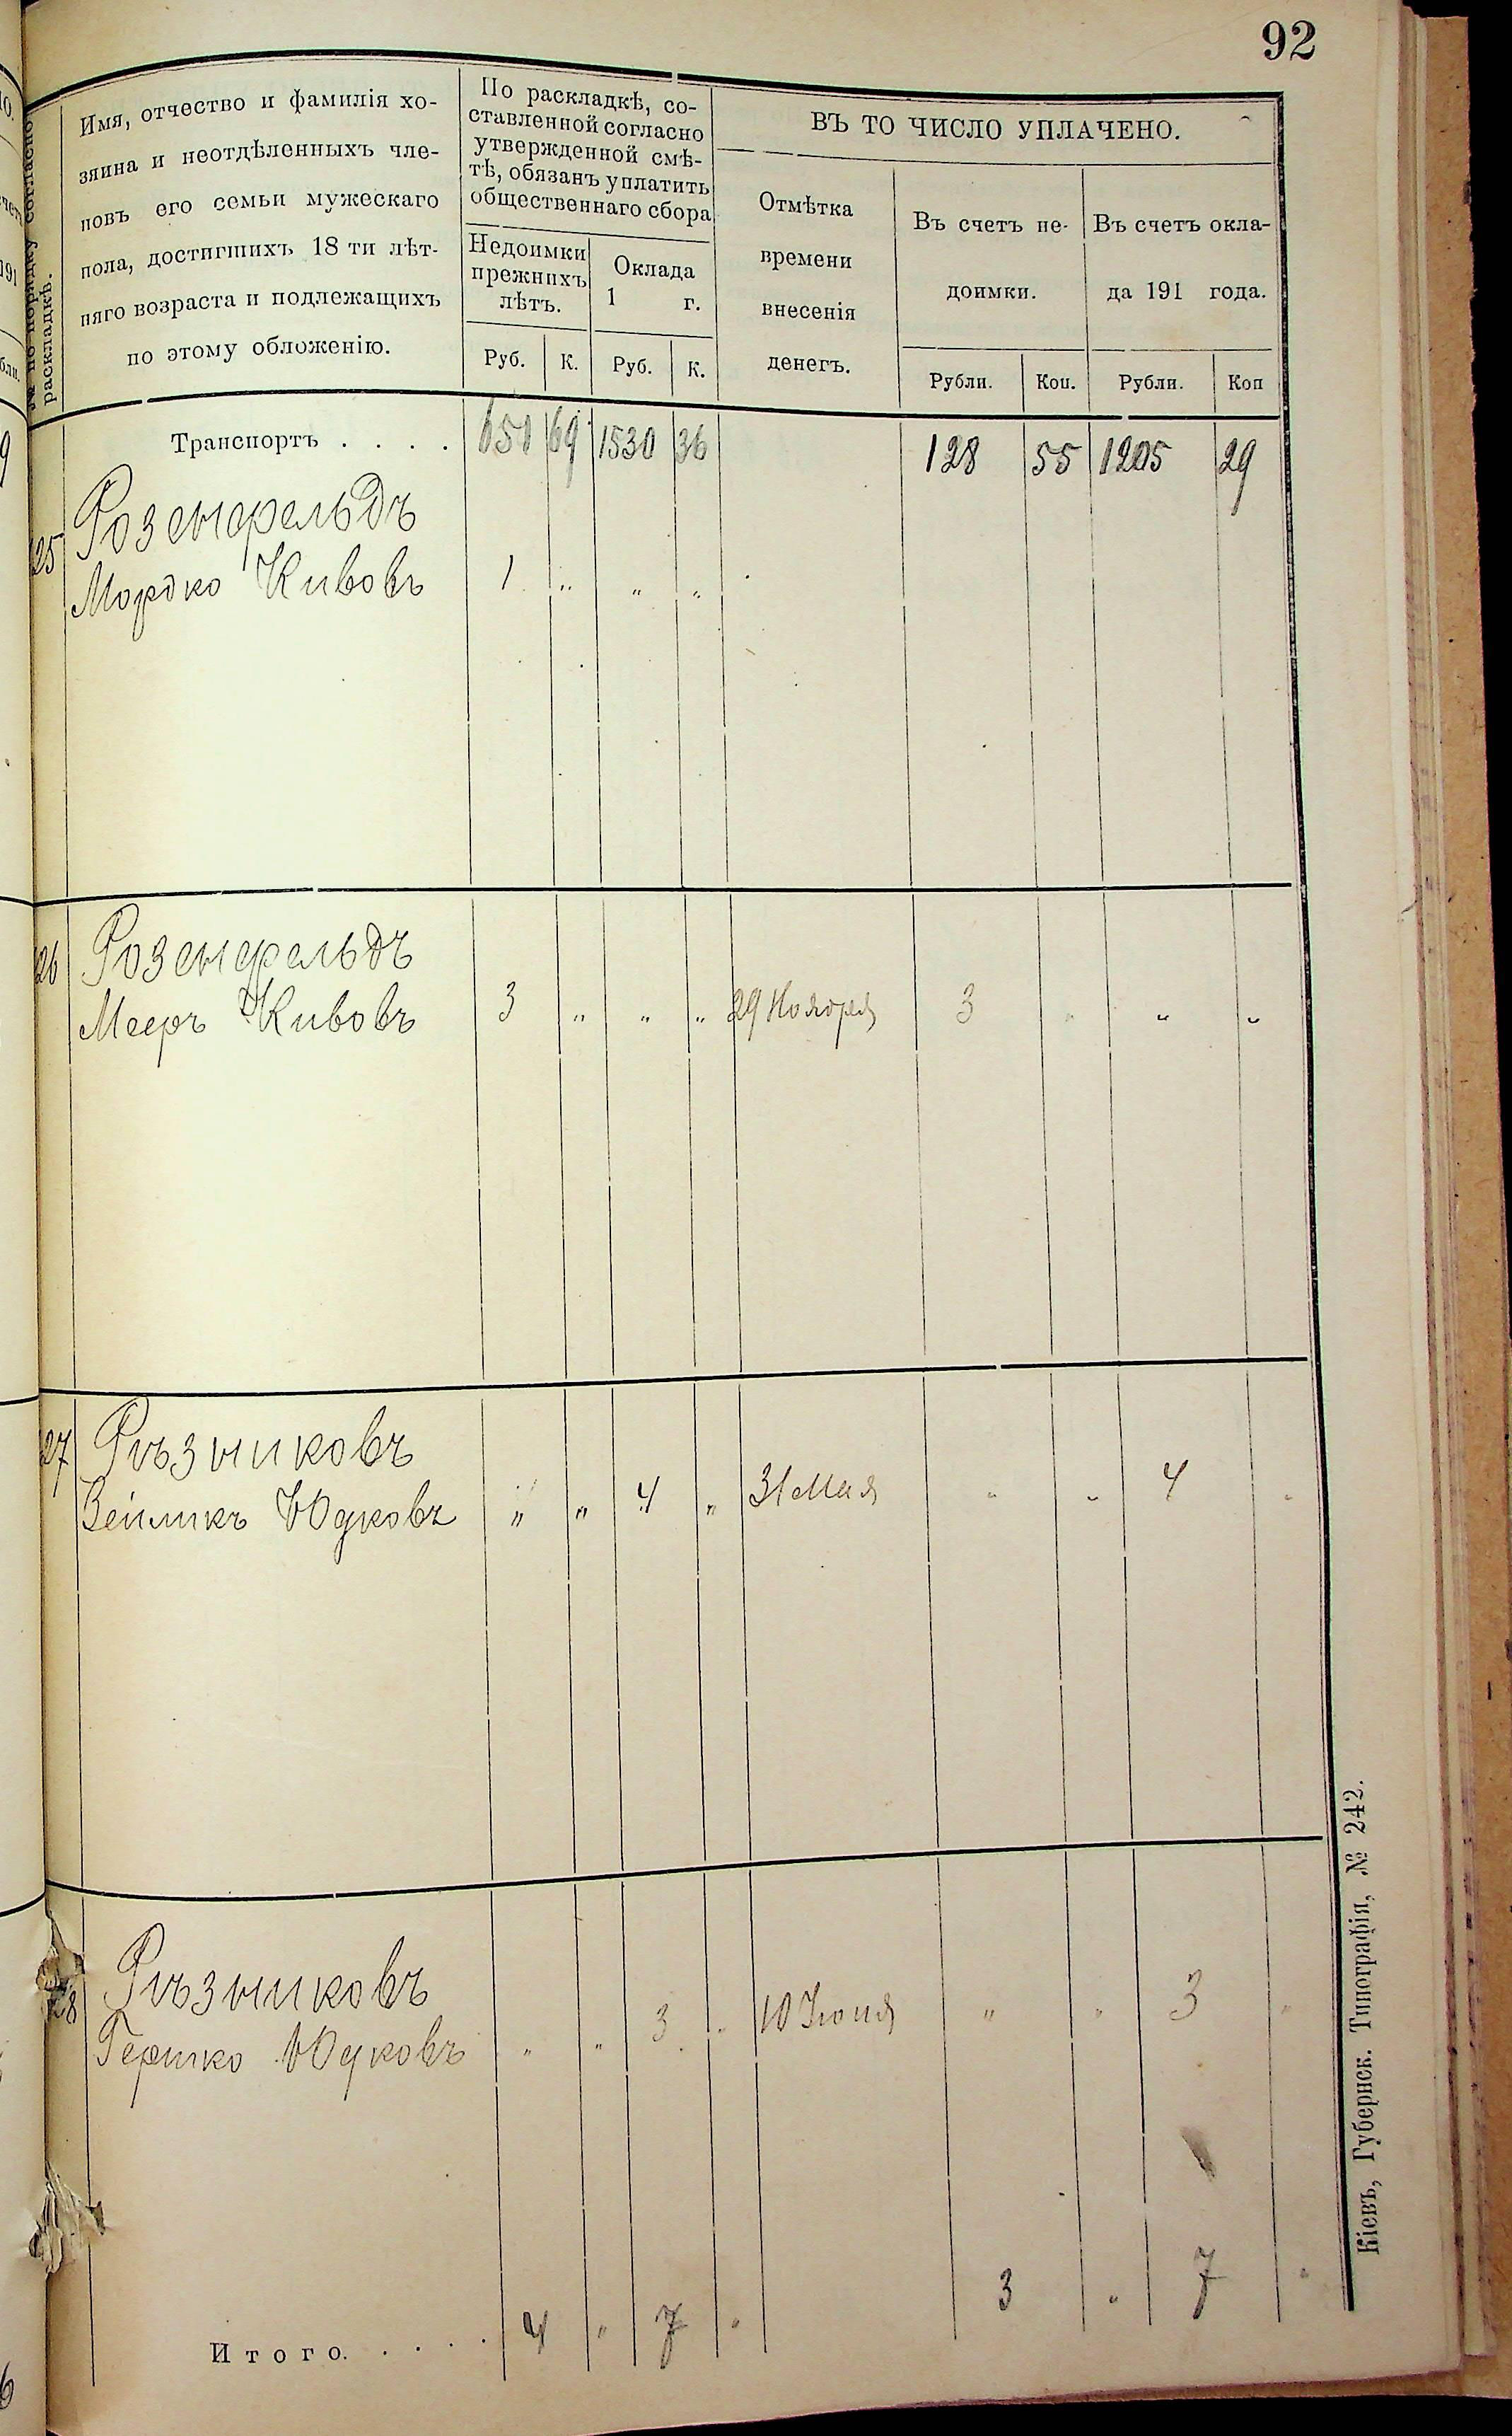 92
№ по порядку согласно
раскладкѣ.
Имя, отчество и фамилія хо-
зяина и неотдѣленныхъ чле-
новъ его семьи мужескаго
пола, достигшихъ 18 ти лѣт-
няго возраста и подлежащихъ
по этому обложенію.
По раскладкѣ, со-
ставленной согласно
утвержденной смѣ-
тѣ, обязанъ уплатить
общественнаго сбора
Недоимки
прежнихъ
лѣтъ.
Оклада
1 г.
Руб. К. Руб. К.
ВЪ ТО ЧИСЛО УПЛАЧЕНО.
Отмѣтка
времени
внесенія
денегъ.
Въ счетъ не-
доимки.
Въ счетъ окла-
да 191 года.
Рубли. Коп. Рубли. Коп
Транспортъ . . . . 651 69 1530 36 128 55 1205 29
25 Розенфельдъ
Мордко Кивовъ 1 „ „ „
26 Розенфельдъ
Мееръ Кивовъ 3 „ „ „ 29 Ноября 3 „ „ „
27 Рѣзниковъ
Зейликъ Юдковъ „ „ 4 „ 31 Мая „ „ 4 „
28 Рѣзниковъ
Гершко Юдковъ „ „ 3 „ 10 Іюня „ „ 3 „
Итого. . . . . 4 „ 7 „ 3 „ 7 „
Кіевъ, Губернск. Типографія, № 242.